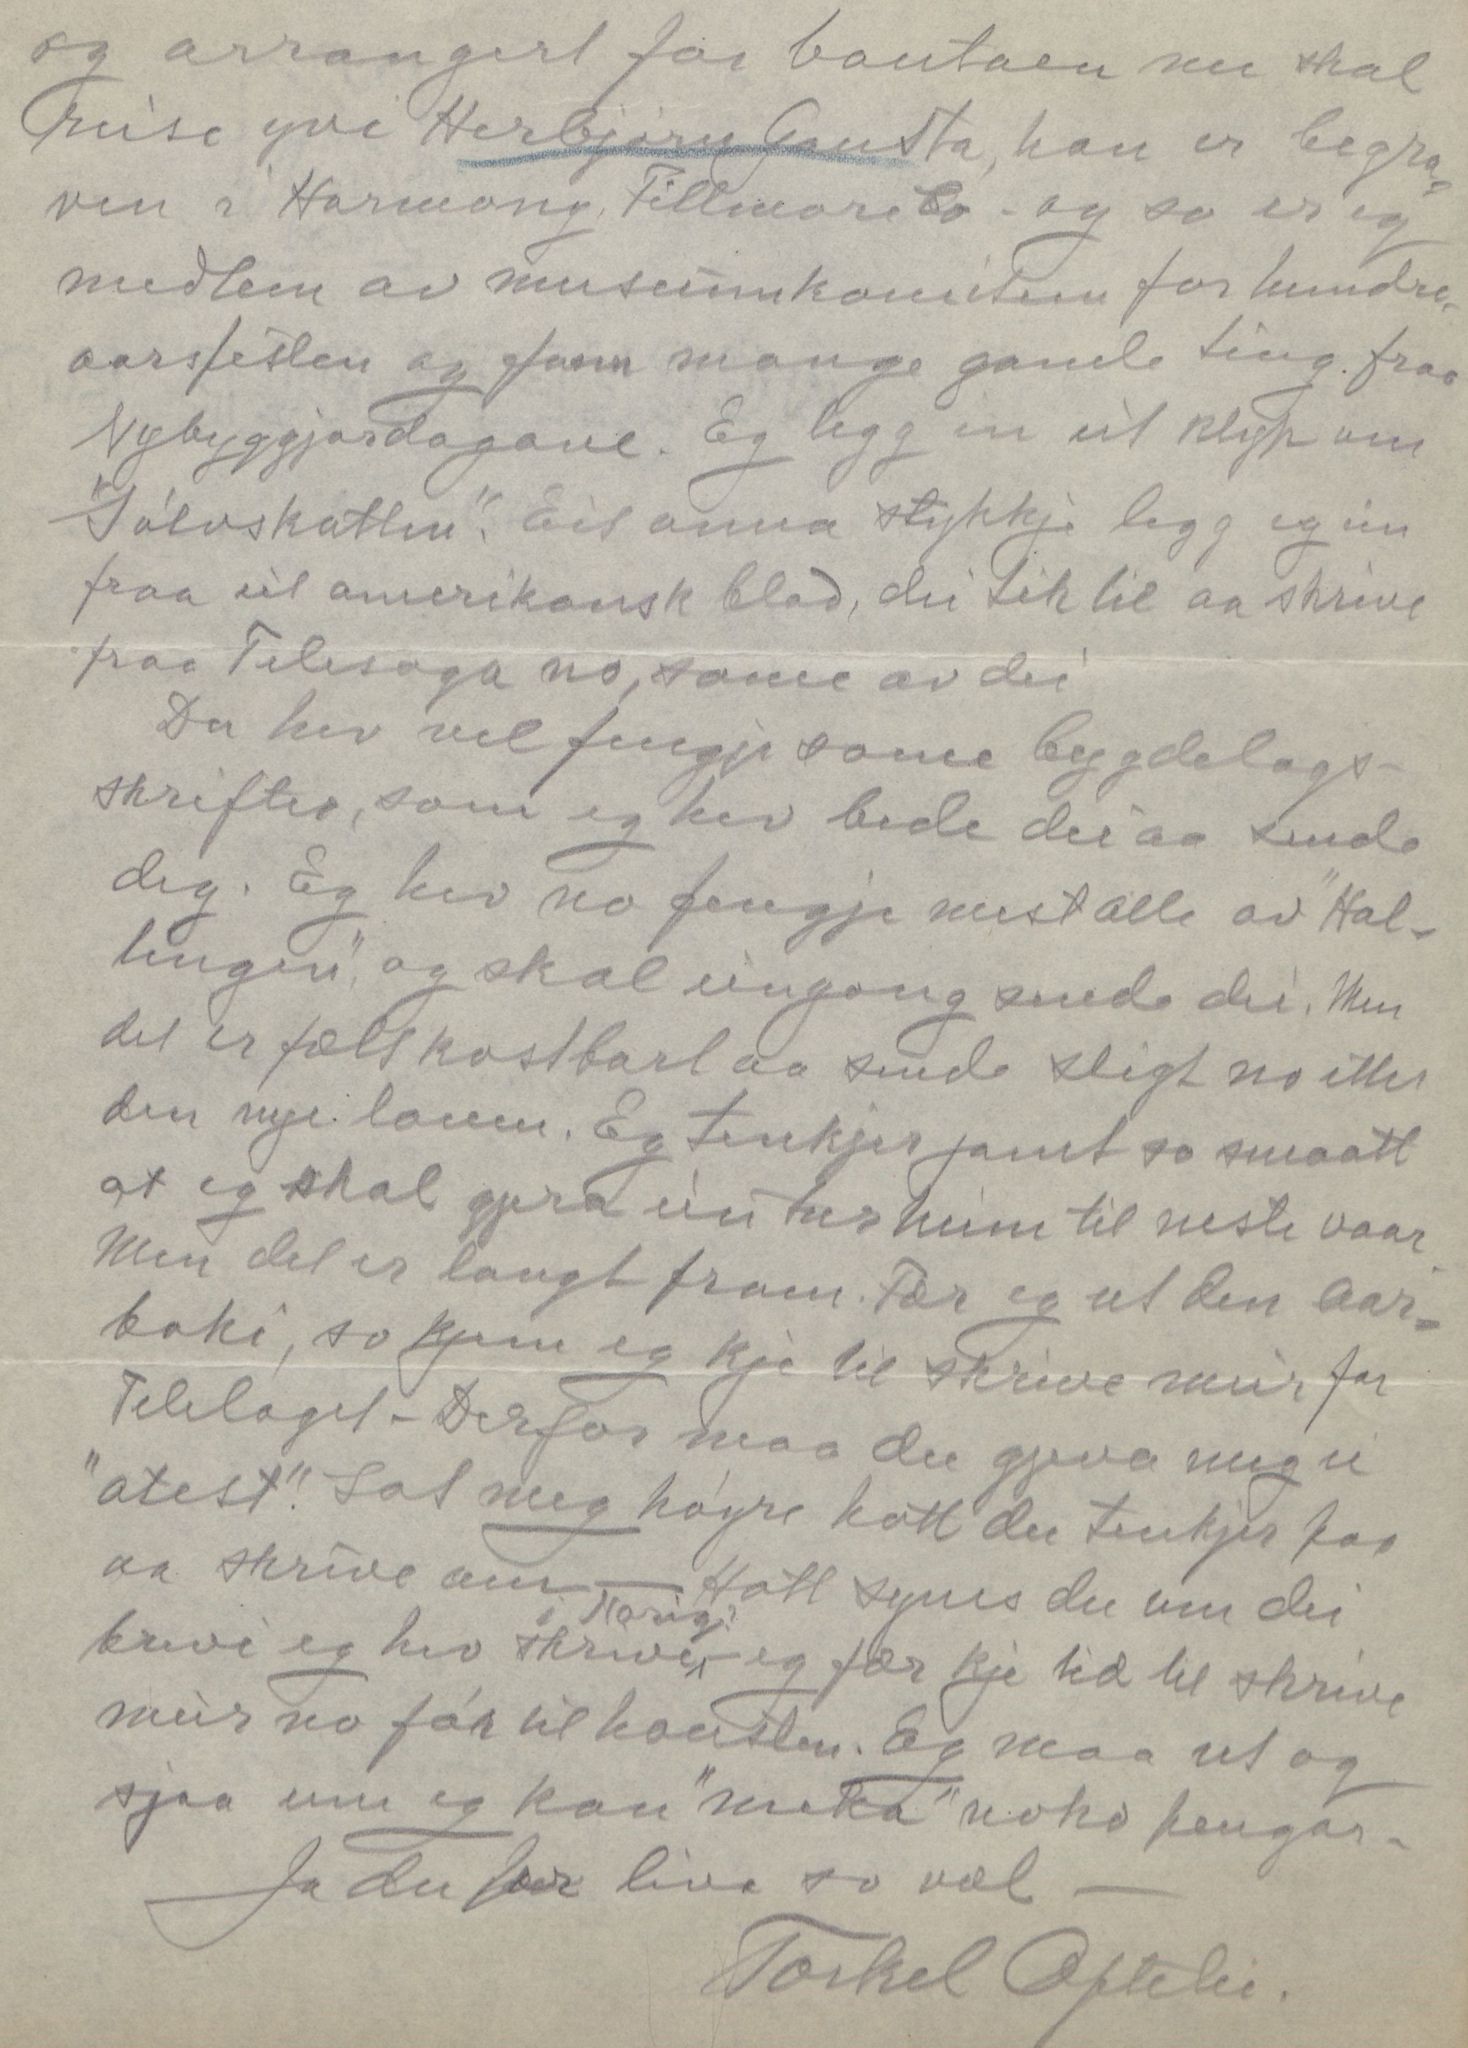 og arrangert for bautaen me skal
reise yvi Herbjörn Gausta, han er begra-
ven i Harmony, Fillmore Co - og so er eg
medlem av museumkomiteen for hundre-
aarsfesten og fær mange gamle ting fraa
Nybyggjardagane. Eg legg in eit klyp um
"Sölvskatten". Eit anna stykkje legg eg in
fraa eit amerikansk blad, dei tek til aa skrive
fraa Telesoga no, some av dei
Du hev vel fengje some bygdelags-
skrifter, som eg hev bede dei aa senda
deg. Eg hev no fengje mest alle av "Hal-
lingen", og skal eingong senda dei. Men
det er fælt kostbart aa senda sligt no etter
den nye loven. Eg tenkjer jamt so smaatt
at eg skal gjera ein tur heim til neste vaar
Men det er langt fram. Fær eg ut den Aar-
boki, so kjem eg kje til skrive meir for
Telelaget - Derfor maa du gjeva meg ei
"atest". Lat meg höyre hott du tenkjer paa
aa skrive um — Hott synes du um dei
brevi eg hev skrive i Norig - eg fær kje tid til skrive
meir no för til hausten. Eg maa ut og
sjaa um eg kan "meka" noko pengar -
Ja du fær liva so væl —
Torkel Oftelie.